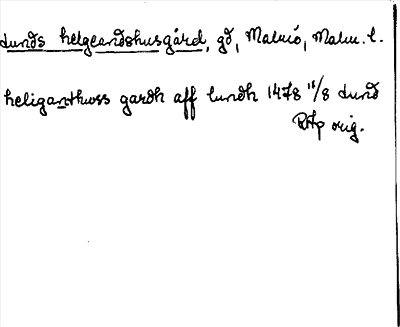 Lunds helgeandshusgård, gd, Malmö, Malm. l.
heliganthuss gardh aff lundh 1478 11/8 Lund
RAp orig.